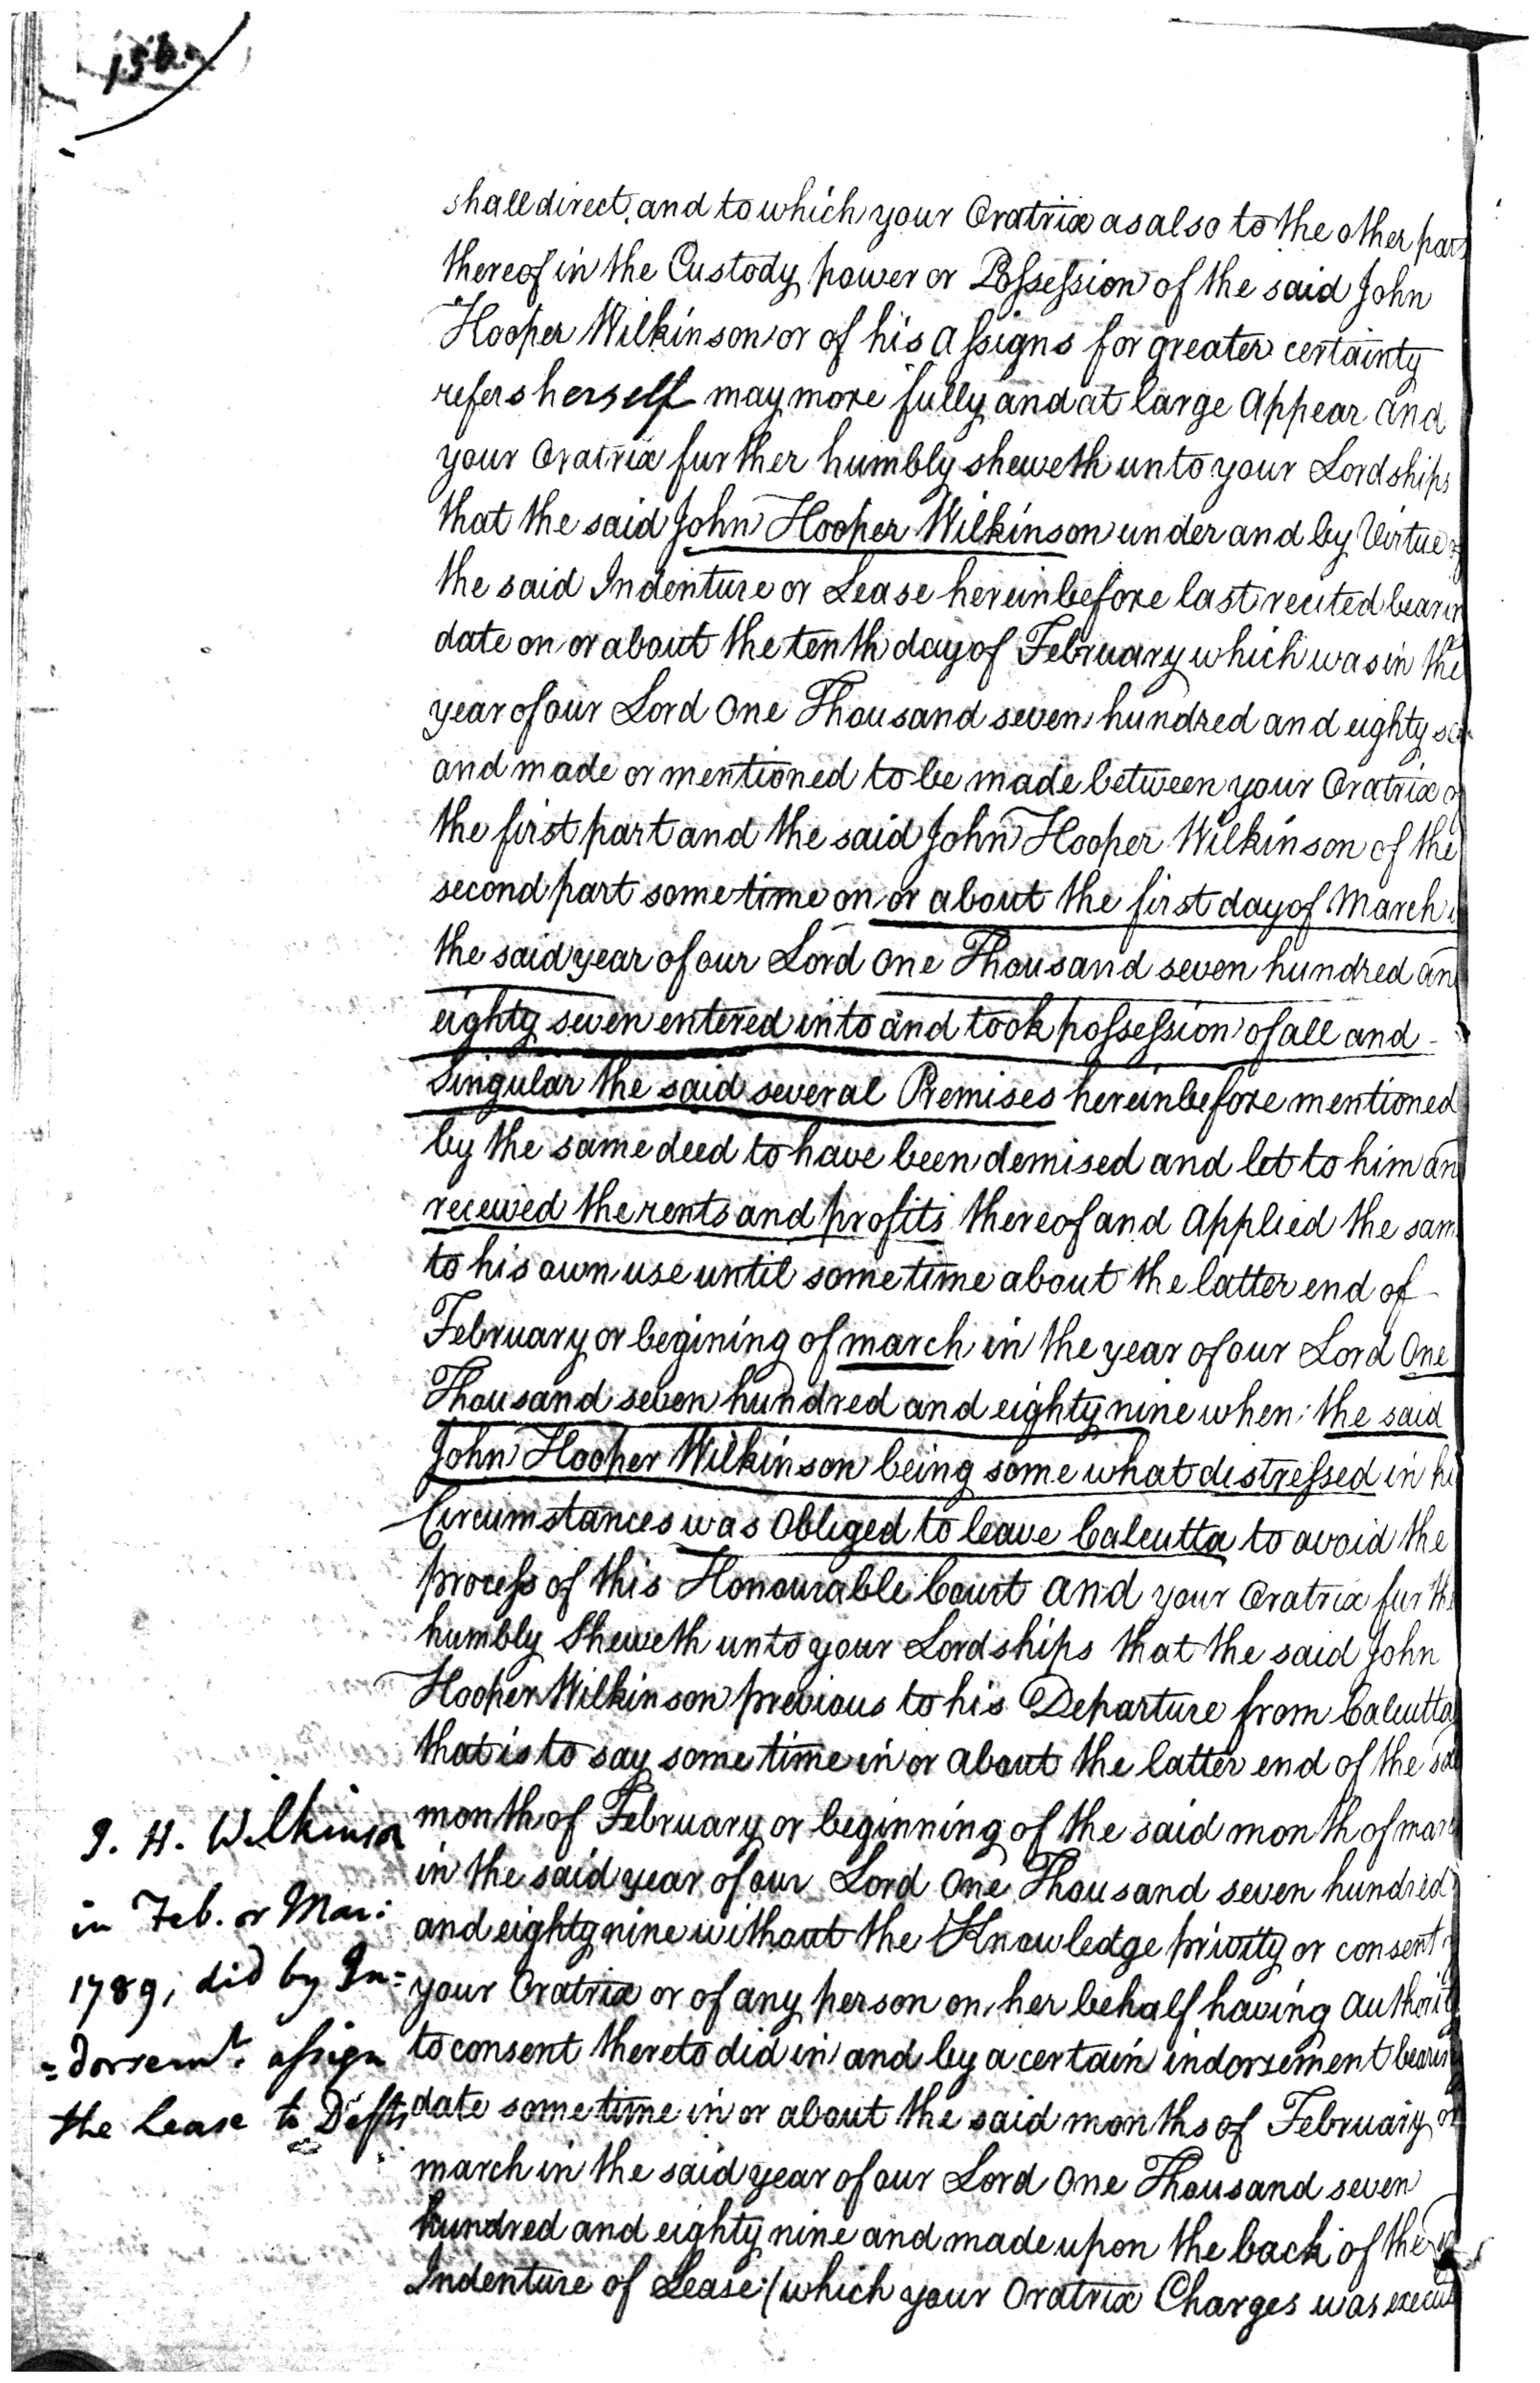 156.
shall direct and to which your Oratrix as also to the other part
thereof in the Custody power or Possession of the said John
Hooper Wilkinson or of his Assigns for greater certainty
refers herself may more fully and at large Appear and
your Oratrix further humbly sheweth unto your Lordships
that the said John Hooper Wilkinson under and by Virtue of
the said Indenture or Lease hereinbefore last recited bearin
date on or about the tenth day of February which was in the
year of our Lord One Thousand seven hundred and eighty
and made or mentioned to be made between your Oratrix of
the first part and the said John Hooper Wilkinson of the
second part some time on or about the first day of March
the said year of our Lord One Thousand seven hundred an
eighty seven entered into and took possession of all and
Singular the said several Premises hereinbefore mentioned
by the same deed to have been demised and let to him an
received the rents and profits thereof and Applied the sam
to his own use until sometime about the latter end of
February or begining of march in the year of our Lord One
Thousand seven hundred and eighty nine when the said
John Hooper Wilkinson being some what distressed in hi
Circumstances was Obliged to leave Calcutta to avoid the
process of this Honourable Court and your Oratrix furthe
humbly Sheweth unto your Lordships that the said John
Hooper Wilkinson previous to his Departure from Calcutta
that is to say some time in or about the latter end of the
month of February or beginning of the said month of mar
in the said year of our Lord One Thousand seven hundred
and eighty nine without the Knowledge privity or consent
your Oratrix or of any person on her behalf having Authorit
to consent thereto did in and by a certain indorsement bearin
date some time in or about the said months of February or
march in the said year of our Lord One Thousand seven
hundred and eighty nine and made upon the back of the
Indenture of Lease /which your Oratrix Charges was execu
J. H. Wilkinson
in Feb. or Mar:
1789, did by In=
=dorsemt. assign
the Lease to Defts